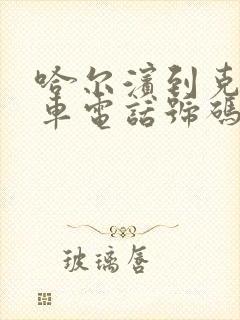 哈尔濱到克
車電話號碼
玻璃唇